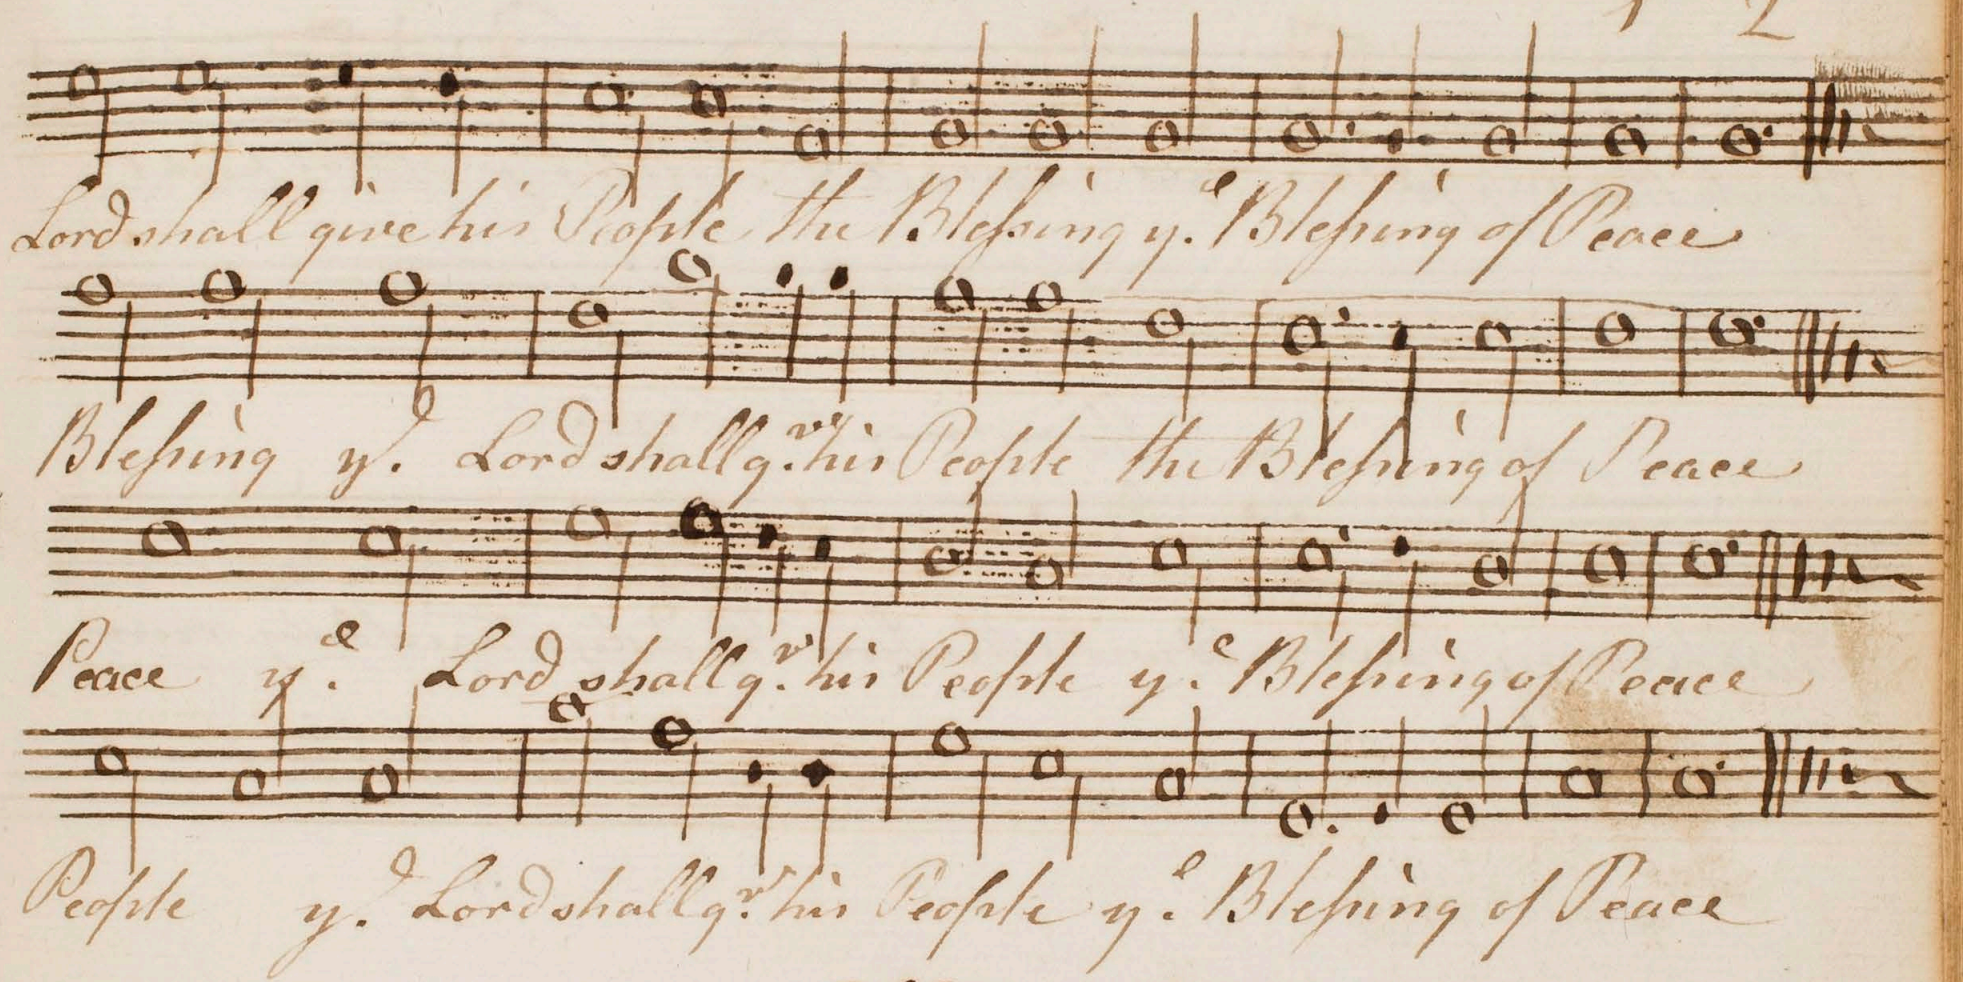 1 2
Lord shall give his People the Blessing yᵉ. Blessing of Peace
Blessing yᵉ. Lord shall gᵛ. his People the Blessing of Peace
Peace yᵉ. Lord shall gᵛ. his People yᵉ. Blessing of Peace
People yᵉ. Lord shall gᵛ. his People yᵉ. Blessing of Peace